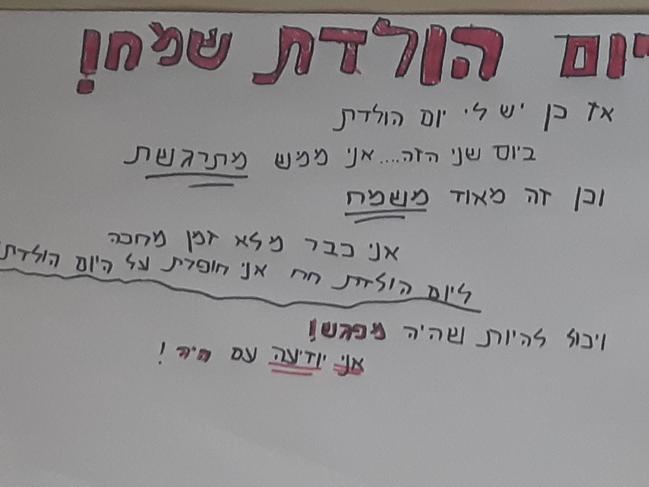 יום הולדת שמח!
אז כן יש לי יום הולדת
ביום שני הזה....אני ממש מתרגשת
וכן זה מאוד משמח
אני כבר מלא זמן מחכה
ליום הולדת חח אני חופרת על היום הולדת
ויכול להיות ושהיה מפגש!
אני יודיעה עם